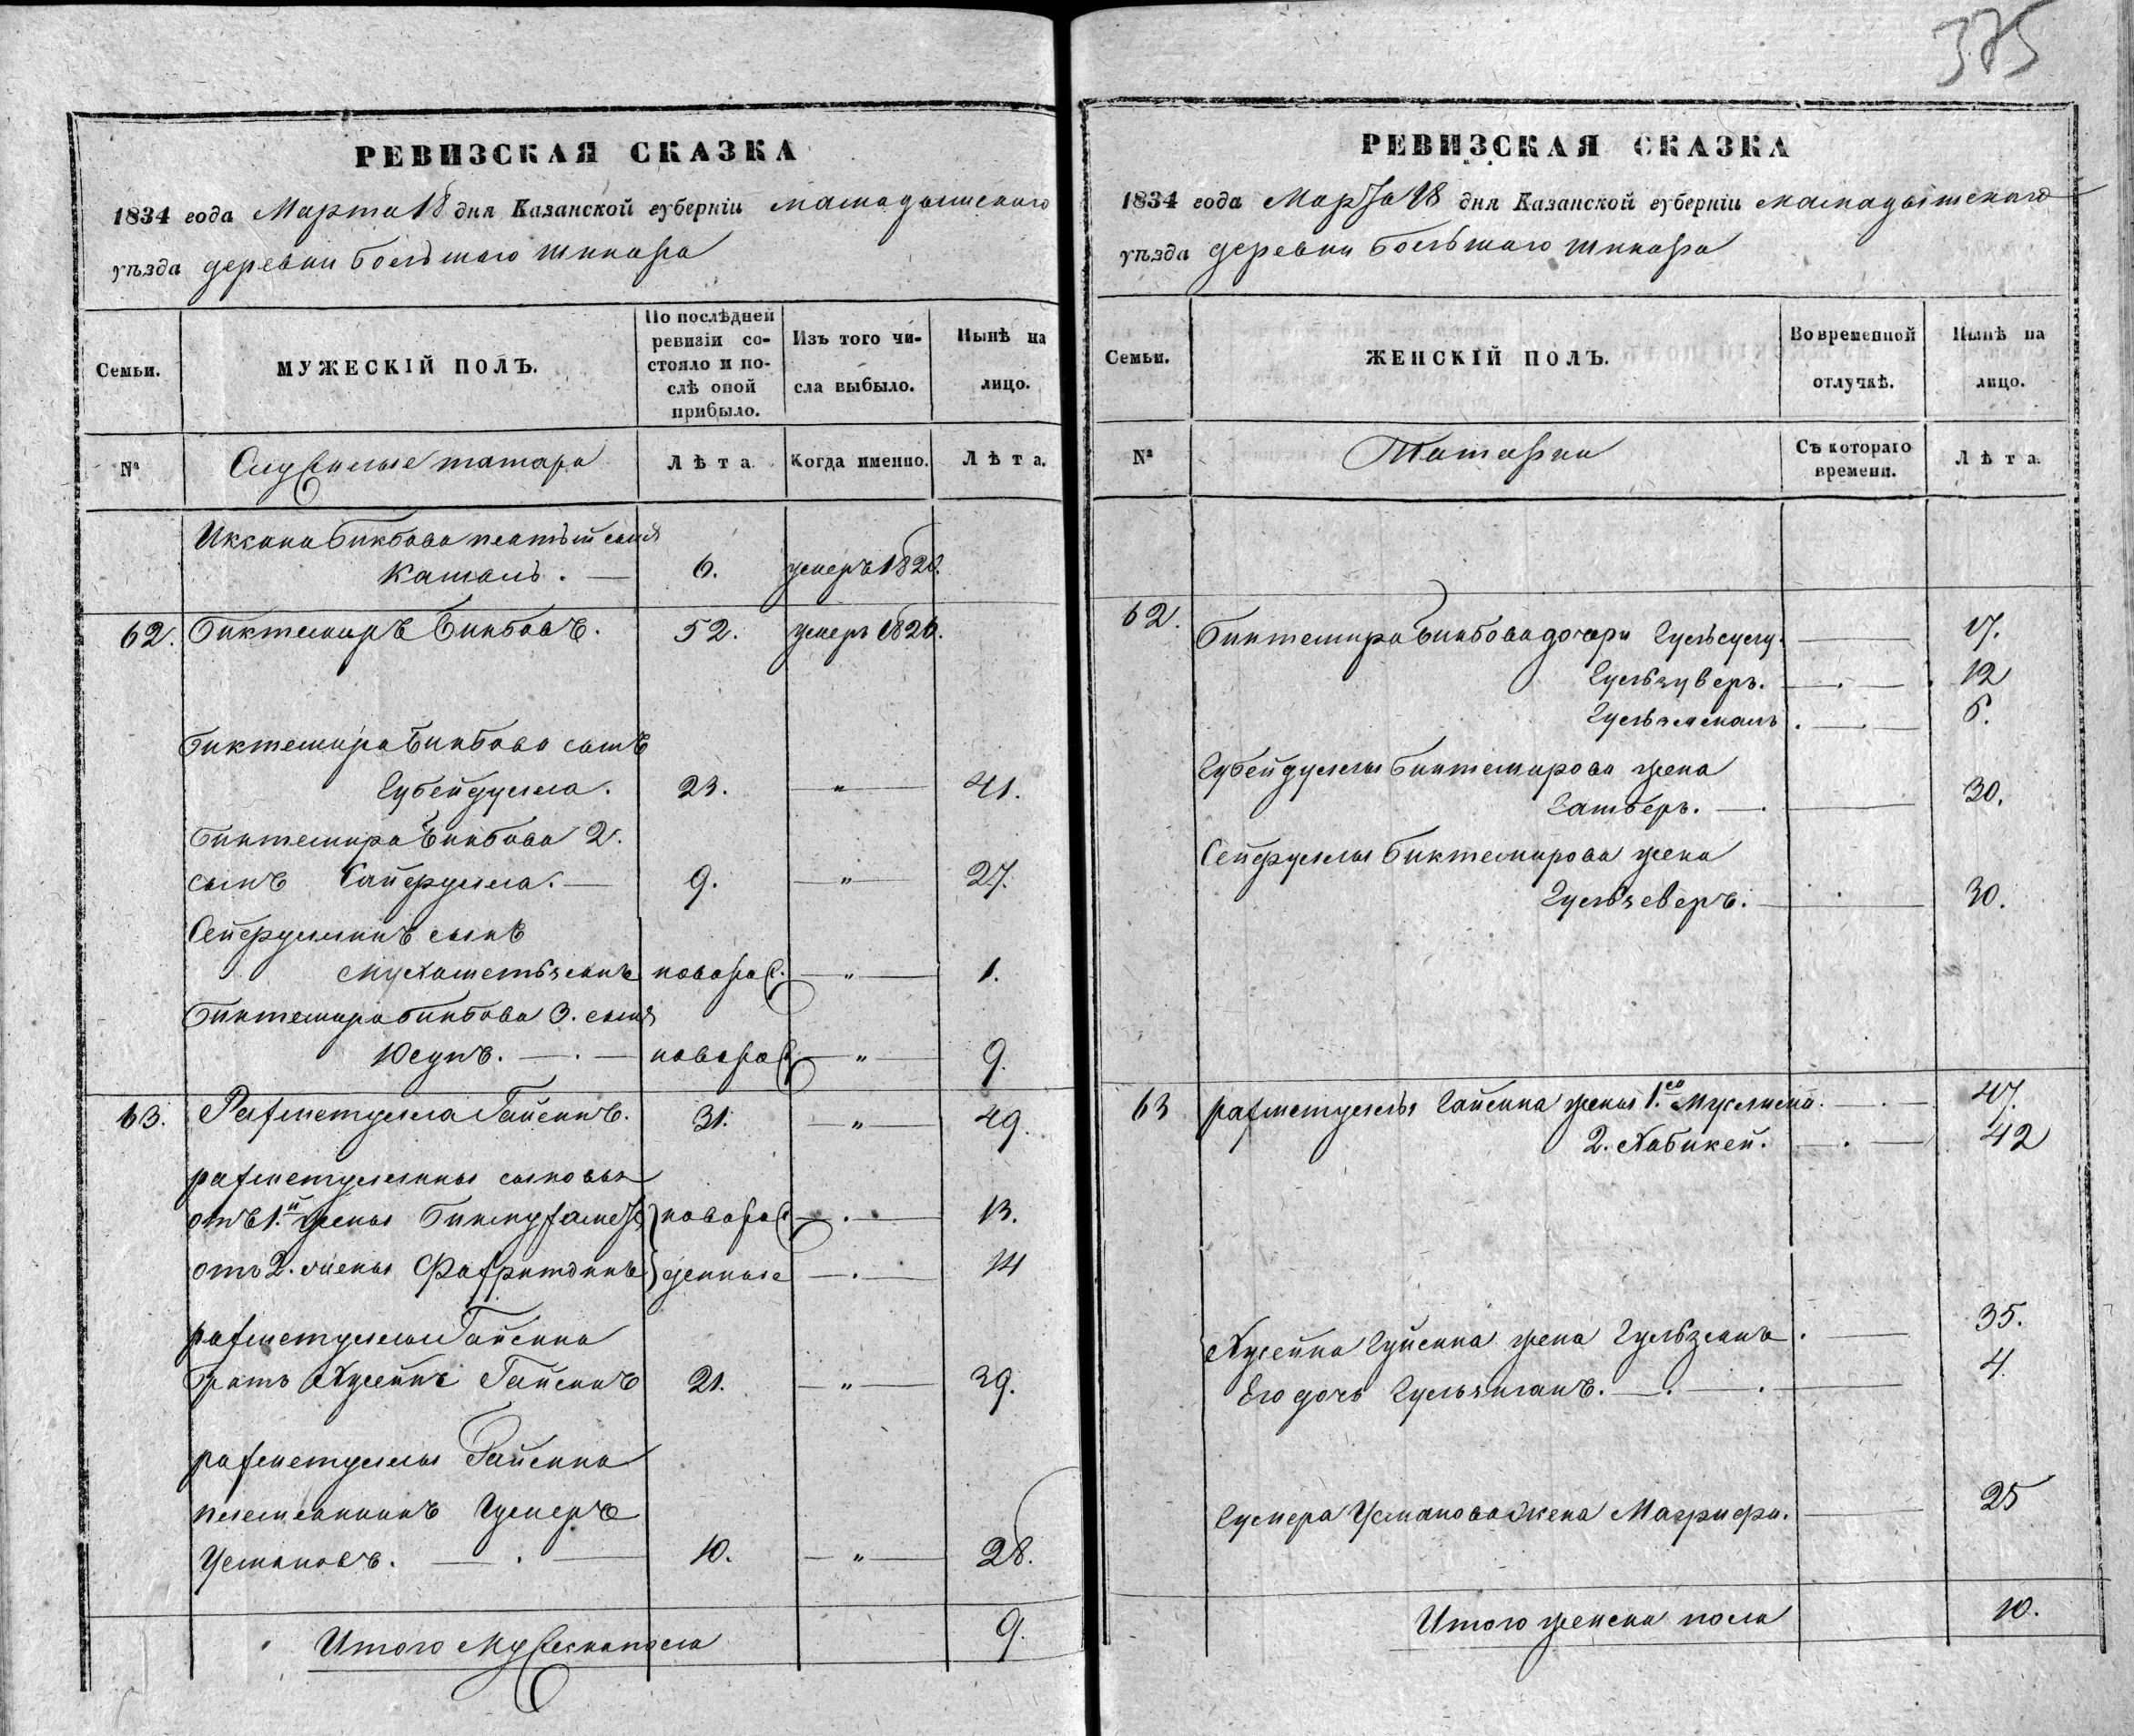 385
РЕВИЗСКАЯ СКАЗКА
1834 года Марта 18 дня Казанской губерніи мамадышскаго
уѣзда деревни большаго шинара
Семьи.
МУЖЕСКІЙ ПОЛЪ.
По послѣдней ревизіи со-
стояло и по-
слѣ оной
прибыло.
Изъ того чи-
сла выбыло.
Нынѣ на
лицо.
№
Служилые татара
Лѣта.
Когда именно.
Лѣта.
Биккова пятый сынъ
Камаль. 6. умеръ 1820.
62. Биктемиръ Бикбовъ. 52. умеръ 1826.
Биктемира Бикбова сынъ
Губейдулла. 23. " 41.
Биктемира Бикбова 2.
сынъ Сайфулла. 9. " 27.
Сейфуллинъ сынъ
Мухаметьянъ новорож. " 1.
Биктемира Бикбова 3. сынъ
Юсупъ. новорож. " 9.
63. Рахметулла Гайсинъ. 31. " 49.
рахметуллины сыновья
отъ 1.й жены новорож 13.
отъ 2. жены Фахритдинъ денные 14
рахметуллы Гайсина
братъ Хусейнъ Гайсинъ 21. " 39.
рахметуллы Гайсина
племянникъ Гумеръ
Усмановъ. 10. " 28.
Итого мужеска пола 9.
РЕВИЗСКАЯ СКАЗКА
1834 года Марта 18 дня Казанской губерніи мамадышскаго
уѣзда деревни большаго шинара
Семьи.
ЖЕНСКІЙ ПОЛЪ.
Во временной
отлучкѣ.
Нынѣ на
лицо.
№
Татарки
Съ котораго
времени.
Лѣта.
62. Биктемира Бикбова дочери Гульсулу. 17.
12
6.
Губейдуллы Биктемирова жена
30.
Сейфуллы Биктемирова жена
Гульчеверъ. 30.
63 рахметуллы Гайсина жены 1.ая 47.
2. Хабикей. 42
Хусейна Гайсина жена 35.
Его дочь 4.
Гумера Усманова жена 25
Итого женска пола 10.